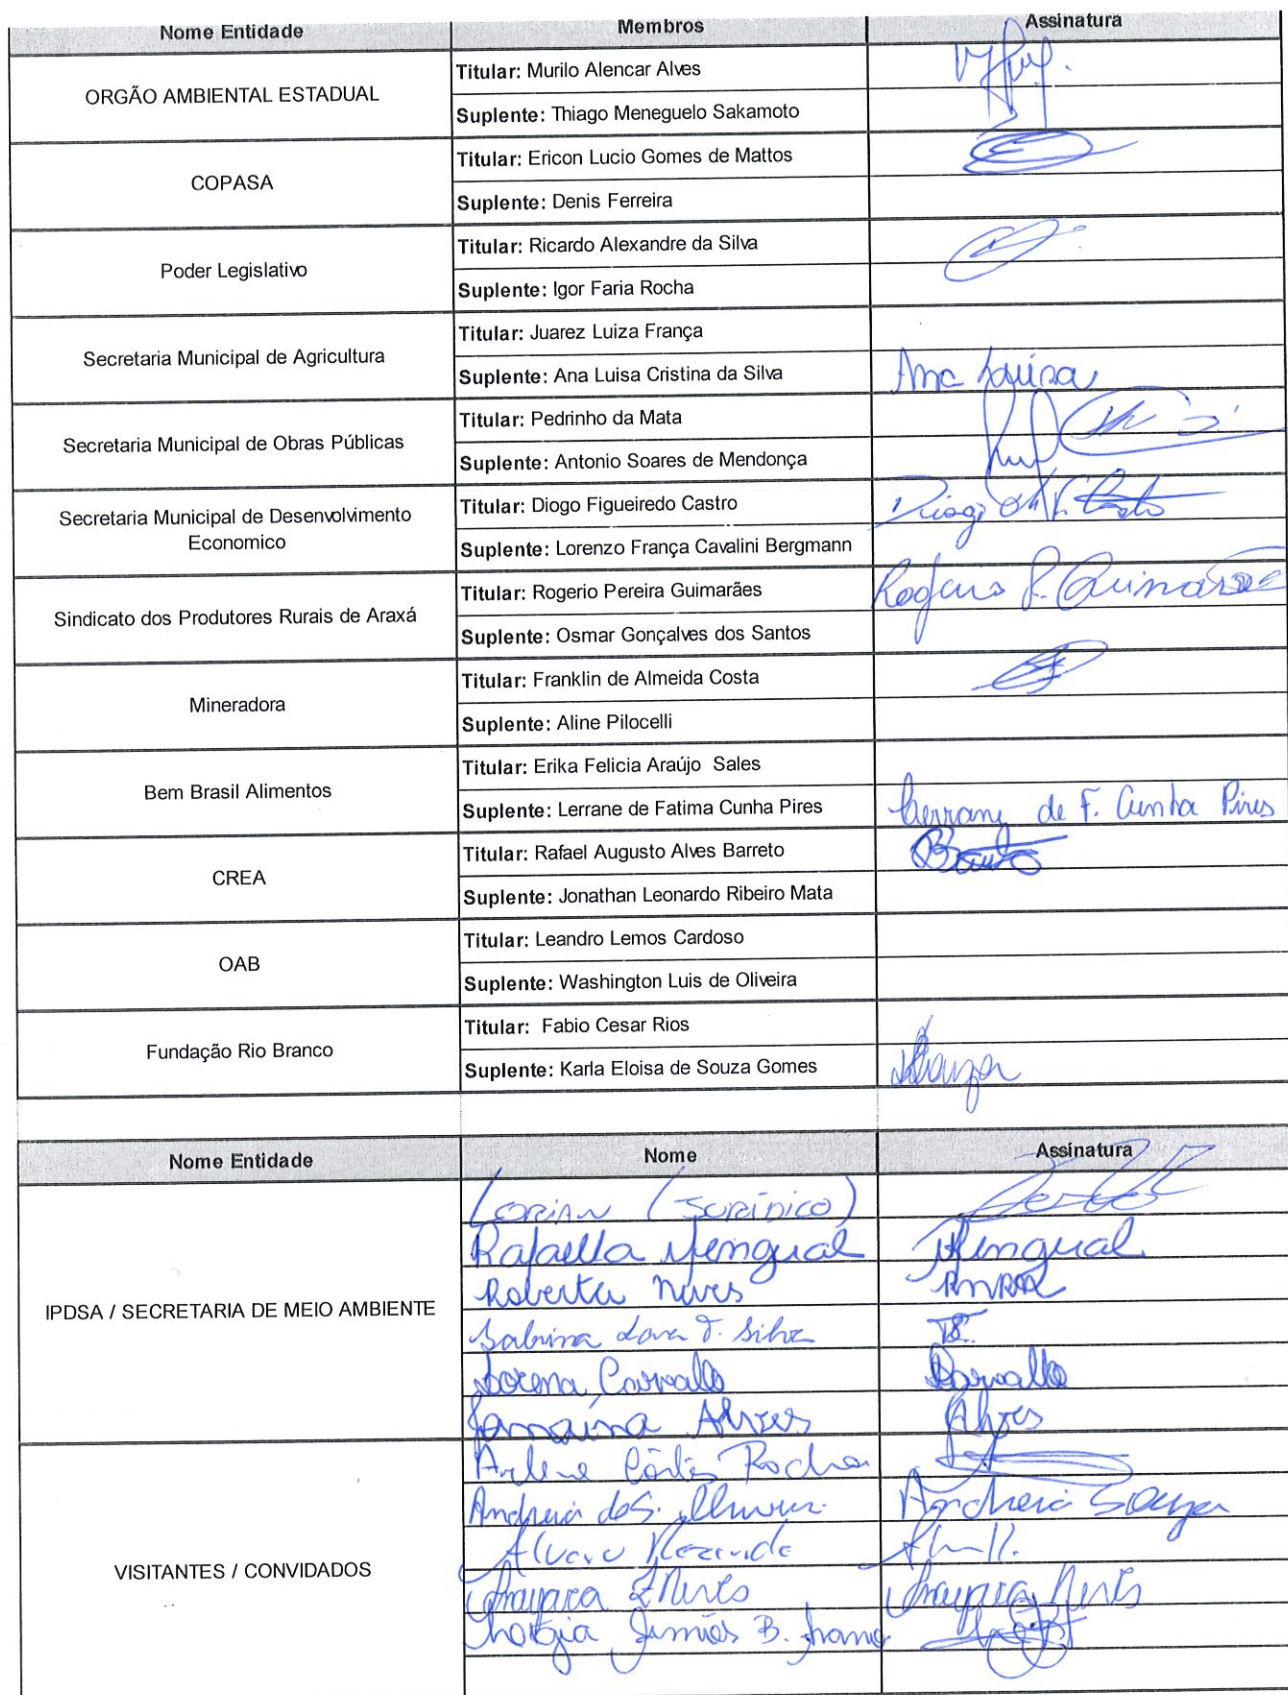 Nome Entidade Membros Assinatura
ORGÃO AMBIENTAL ESTADUAL
Titular: Murilo Alencar Alves
Suplente: Thiago Meneguelo Sakamoto
COPASA
Titular: Ericon Lucio Gomes de Mattos
Suplente: Denis Ferreira
Poder Legislativo
Titular: Ricardo Alexandre da Silva
Suplente: Igor Faria Rocha
Secretaria Municipal de Agricultura
Titular: Juarez Luiza França
Suplente: Ana Luisa Cristina da Silva Ana Luisa
Secretaria Municipal de Obras Públicas
Titular: Pedrinho da Mata
Suplente: Antonio Soares de Mendonça
Secretaria Municipal de Desenvolvimento
Economico
Titular: Diogo Figueiredo Castro Diogo
Suplente: Lorenzo França Cavalini Bergmann
Sindicato dos Produtores Rurais de Araxá
Titular: Rogerio Pereira Guimarães Rogerio P. Guimarães
Suplente: Osmar Gonçalves dos Santos
Mineradora
Titular: Franklin de Almeida Costa
Suplente: Aline Pilocelli
Bem Brasil Alimentos
Titular: Erika Felicia Araújo Sales
Suplente: Lerrane de Fatima Cunha Pires Lerrane de F. Cunha Pires
CREA
Titular: Rafael Augusto Alves Barreto
Suplente: Jonathan Leonardo Ribeiro Mata
OAB
Titular: Leandro Lemos Cardoso
Suplente: Washington Luis de Oliveira
Fundação Rio Branco
Titular: Fabio Cesar Rios
Suplente: Karla Eloisa de Souza Gomes KSouza
Nome Entidade Nome Assinatura
IPDSA / SECRETARIA DE MEIO AMBIENTE
(JURÍDICO)
Rafaella Mengual Mengual
Roberta Neves
Sabrina Lara T. Silva
Lorena Carvalho Carvalho
Janaína Alves Alves
VISITANTES / CONVIDADOS
Arlene Côrtes Rocha
Andreia de S. Andreia Souza
Alvaro Rezende
Neves Neves
B.